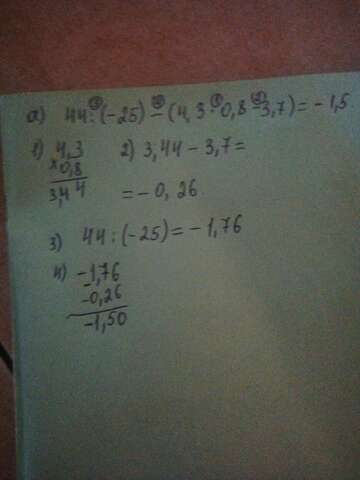 а) 44 : (-25) - (4,3 · 0,8 - 3,7) = - 1,5
1) 4,3
x 0,8
3,44
2) 3,44 - 3,7 =
= - 0, 26
3) 44 : (-25) = - 1,76
4) -1,76
-
-0,26
-1,50